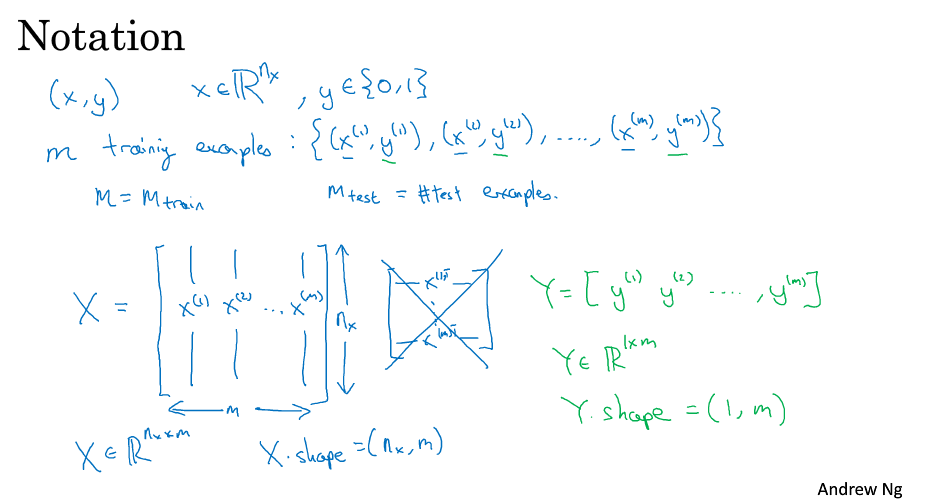 Notation
(x,y) x∈ℝ^{n_x}, y∈{0,1}
m training examples: {(x^{(1)},y^{(1)}), (x^{(2)},y^{(2)}), ...., (x^{(m)},y^{(m)})}
M = M_train M_test = #test examples.
X = [x^{(1)} x^{(2)} ... x^{(m)}] n_x
m
x^{(1)T}
x^{(m)T}
Y = [y^{(1)} y^{(2)} ...., y^{(m)}]
Y∈ℝ^{1×m}
Y.shape = (1,m)
X∈ℝ^{n_x×m} X.shape = (n_x,m)
Andrew Ng